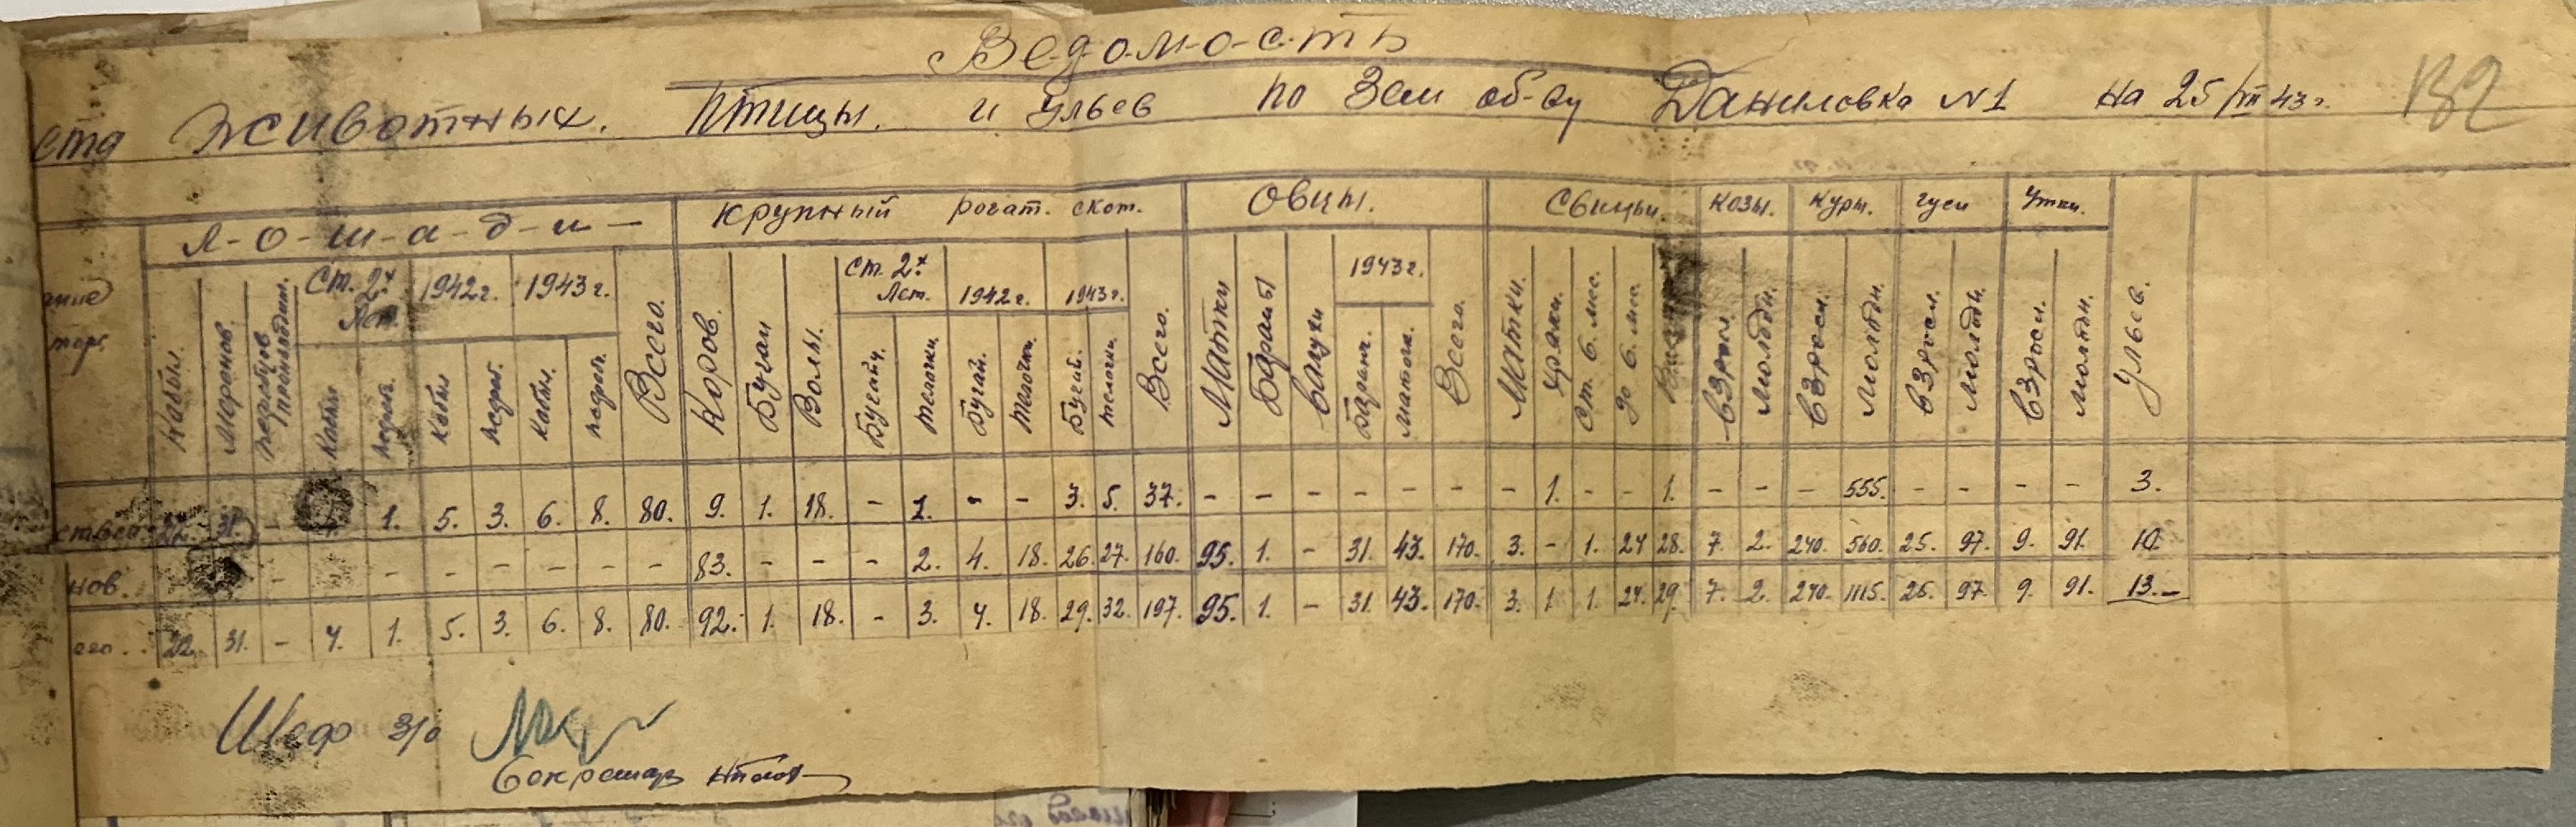 Ведомость
ста животных. Птицы. и Ульев по Зем об-ву Даниловка N1 на 25/VIII 43 г.
132
Л-о-ш-а-д-и- Крупный рогат. скот. Овцы. Свиньи. Козы. Куры. гуси Утки. Ульев.
Ст. 2х Лет. 1942 г. 1943 г. Всего. Ст. 2х Лет. 1942 г. 1943 г. Всего. 1943 г. Всего.
Кобыл. Меринов. жеребцов производит. Кобыл жереб. Кобыл жереб. Кобыл. жереб. Коров. Бугаи Волы. Бугайч. телочки. Бугай. телочки. Бугай. телочки. Матки Бараны Валухи Баранч. маточк. Матки. Хряки. Ст. 6. мес. до 6. мес. Всего Взросл. Молодн. Взросл. Молодн. Взросл. Молодн. Взросл. Молодн.
ства 22. 31. - 4. 1. 5. 3. 6. 8. 80. 9. 1. 18. - 1. - - 3. 5. 37. - - - - - - - 1. - - 1. - - - 555. - - - - 3.
нов. - - - - - - - - 83. - - - 2. 4. 18. 26. 27. 160. 95. 1. - 31. 43. 170. 3. - 1. 24 28. 7. 2. 240. 560. 25. 97. 9. 91. 10.
его. 22. 31. - 4. 1. 5. 3. 6. 8. 80. 92. 1. 18. - 3. 4. 18. 29. 32. 197. 95. 1. - 31. 43. 170. 3. 1. 1. 24. 29. 7. 2. 240. 1115. 25. 97. 9. 91. 13.-
Шеф з/о
Секретарь